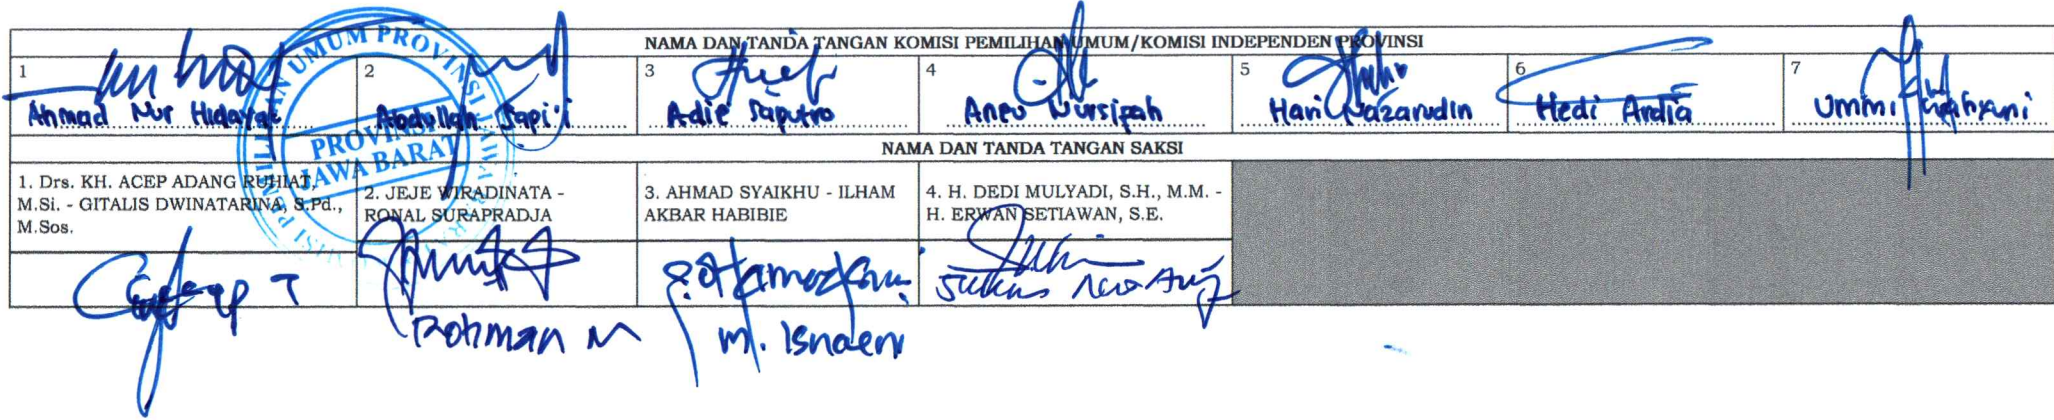 NAMA DAN TANDA TANGAN KOMISI PEMILIHAN UMUM/KOMISI INDEPENDEN PROVINSI
1
Ahmad Nur Hidayat
2
Abdullah Sapi'i
3
Adie Saputro
4
Aneu Nursifah
5
Hari Nazarudin
6
Hedi Ardia
7
Ummi Wahyuni
PROVINSI
JAWA BARAT
NAMA DAN TANDA TANGAN SAKSI
1. Drs. KH. ACEP ADANG RUHIAT,
M.Si. - GITALIS DWINATARINA, S.Pd.,
M.Sos.
2. JEJE WIRADINATA -
RONAL SURAPRADJA
3. AHMAD SYAIKHU - ILHAM
AKBAR HABIBIE
4. H. DEDI MULYADI, S.H., M.M. -
H. ERWAN SETIAWAN, S.E.
Rohman M
M. Isnaeni